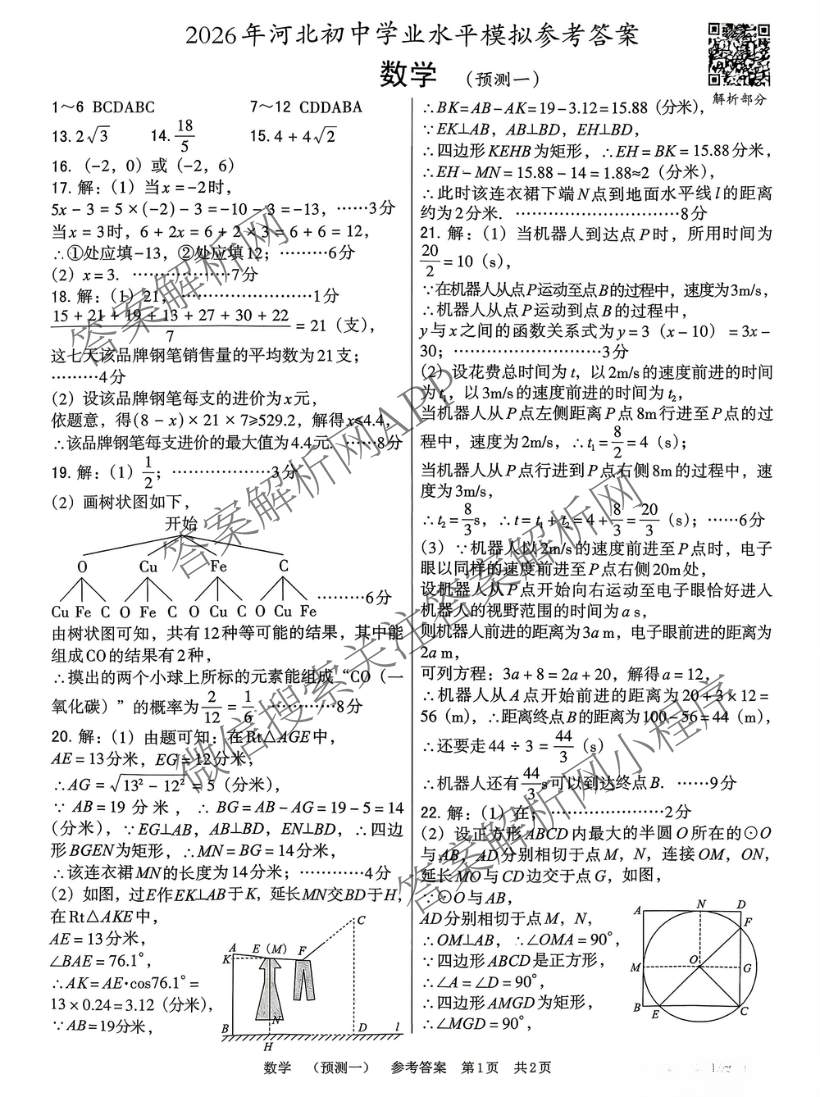 2026年河北初中学业水平模拟参考答案
数学 （预测一）
解析部分
1～6 BCDABC 7～12 CDDABA
13. 2√3 14. 18/5 15. 4 + 4√2
16. （-2，0）或（-2，6）
17. 解：（1）当 x = -2时，
5x - 3 = 5 ×（-2）- 3 = -10 - 3 = -13，……3分
当 x = 3时，6 + 2x = 6 + 2 × 3 = 6 + 6 = 12，
∴①处应填-13，②处应填12；………6分
（2）x = 3. ……………7分
18. 解：（1）21，……………………1分
(15 + 21 + 19 + 13 + 27 + 30 + 22)/7 = 21（支），
这七天该品牌钢笔销售量的平均数为21支；
………4分
（2）设该品牌钢笔每支的进价为x元，
依题意，得（8 - x）× 21 × 7≥529.2，解得x≤4.4，
∴该品牌钢笔每支进价的最大值为4.4元. ……8分
19. 解：（1）1/2；………………3分
（2）画树状图如下，
开始
O Cu Fe C
Cu Fe C O Fe C O Cu C O Cu Fe ………6分
由树状图可知，共有12种等可能的结果，其中能
组成CO的结果有2种，
∴摸出的两个小球上所标的元素能组成“CO（一
氧化碳）”的概率为 2/12 = 1/6. …………8分
20. 解：（1）由题可知：在Rt△AGE中，
AE = 13分米，EG = 12分米，
∴AG = √(13² - 12²) = 5（分米），
∵ AB = 19 分 米 ， ∴ BG = AB - AG = 19 - 5 = 14
（分米），∵EG⊥AB，AB⊥BD，EN⊥BD，∴四边
形BGEN为矩形，∴MN = BG = 14分米，
∴该连衣裙MN的长度为14分米；…………4分
（2）如图，过E作EK⊥AB于K，延长MN交BD于H，
在Rt△AKE中，
AE = 13分米，
∠BAE = 76.1°，
∴AK = AE•cos76.1° =
13 × 0.24 = 3.12（分米），
∵AB = 19分米，
A E（M） F C
K
N
B D l
H
∴BK = AB - AK = 19 - 3.12 = 15.88（分米），
∵EK⊥AB，AB⊥BD，EH⊥BD，
∴四边形KEHB为矩形，∴EH = BK = 15.88分米，
∴EH - MN = 15.88 - 14 = 1.88≈2（分米），
∴此时该连衣裙下端N点到地面水平线l的距离
约为2分米. …………………………8分
21. 解：（1）当机器人到达点P时，所用时间为
20/2 = 10（s），
∵在机器人从点P运动至点B的过程中，速度为3m/s，
∴机器人从点P运动到点B的过程中，
y与x之间的函数关系式为y = 3（x - 10）= 3x -
30；………………………3分
（2）设花费总时间为t，以2m/s的速度前进的时间
为t₁，以3m/s的速度前进的时间为t₂，
当机器人从P点左侧距离P点8m行进至P点的过
程中，速度为2m/s，∴t₁ = 8/2 = 4（s）；
当机器人从P点行进到P点右侧8m的过程中，速
度为3m/s，
∴t₂ = 8/3 s，∴t = t₁ + t₂ = 4 + 8/3 = 20/3（s）；……6分
（3）∵机器人以2m/s的速度前进至P点时，电子
眼以同样的速度前进至P点右侧20m处，
设机器人从P点开始向右运动至电子眼恰好进人
机器人的视野范围的时间为a s，
则机器人前进的距离为3a m，电子眼前进的距离为
2a m，
可列方程：3a + 8 = 2a + 20，解得a = 12，
∴机器人从A点开始前进的距离为20 + 3 × 12 =
56（m），∴距离终点B的距离为100 - 56 = 44（m），
∴还要走44 ÷ 3 = 44/3（s）
∴机器人还有 44/3 s可以到达终点B. ……9分
22. 解：（1）在；…………………2分
（2）设正方形ABCD内最大的半圆O所在的⊙O
与AB，AD分别相切于点M，N，连接OM，ON，
延长MO与CD边交于点G，如图，
∵⊙O与AB，
AD分别相切于点M，N，
∴OM⊥AB，∴∠OMA = 90°，
∵四边形ABCD是正方形，
∴∠A = ∠D = 90°，
∴四边形AMGD为矩形，
∴∠MGD = 90°，
A N D
F
M O G
B E C
数学 （预测一） 参考答案 第1页 共2页
答案解析网
微信搜索关注答案解析网
答案解析网APP
答案解析网小程序